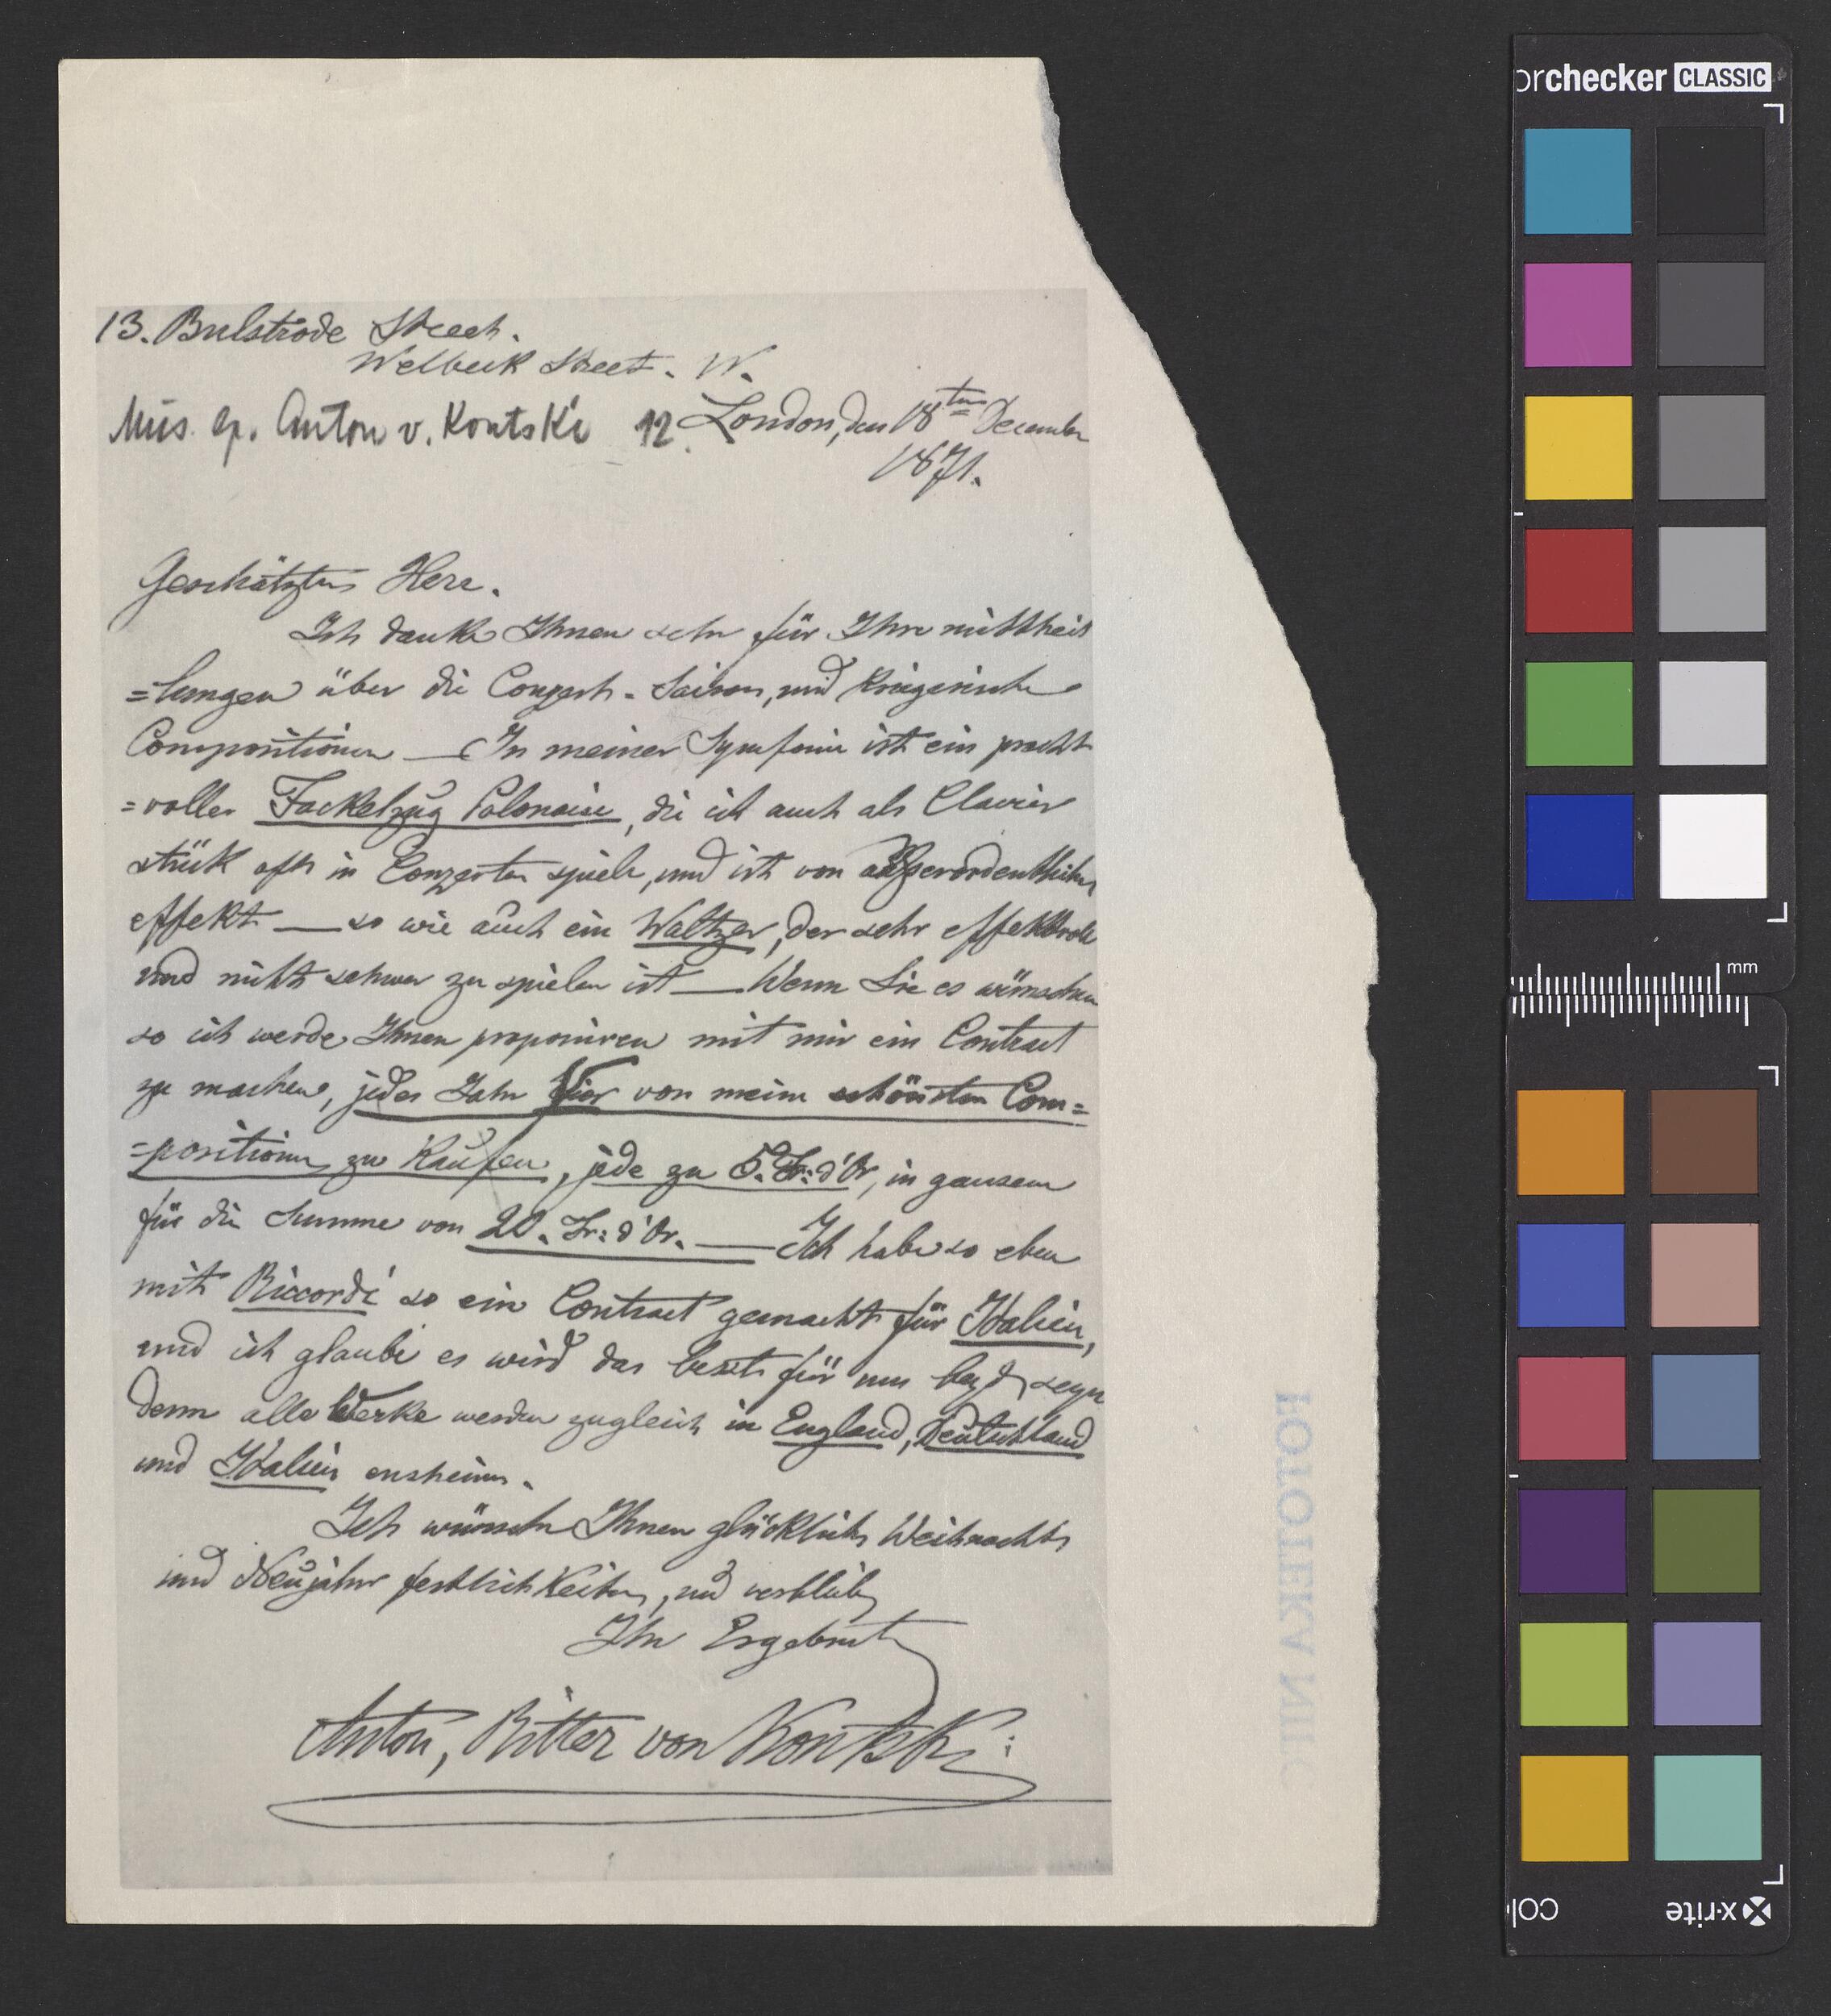 13. Bulstrode Street.
Welbeck Street. W.
Mus. ep. Anton v. Kontski 12
London, den 18ten December
1871.
Geschätzter Herr.
Ich danke Ihnen sehr für Ihre mittheil
=lungen über die Conzert-Saison, und kriegerische
Compositionen — In meiner Symfonie ist ein pracht
=voller Fackelzug Polonaise, die ich auch als Clavier
stück oft in Conzerten spiele, und ist von außerordentlichen
effekt — so wie auch ein Waltzer, der sehr effektvoll
und nicht schwer zu spielen ist — Wenn Sie es wünschen
so ich werde Ihnen proponiren mit mir ein Contract
zu machen, jedes Jahr Vier von meine schönsten Com=
=positionen zu Kaufen, jede zu 5. Fr: d'Or, in ganzem
für die Summe von 20. Fr: d'Or. — Ich habe so eben
mit Riccordi so ein Contract gemacht für Italien,
und ich glaube es wird das beste für uns beyde seyn
denn alle Werke werden zugleich in England, Deutschland
und Italien ersheinen.
Ich wünsche Ihnen glückliche Weihnachts
und Neujahr festlichkeiten, und verbleibe
Ihr Ergebenste
Anton, Ritter von Kontski
FOTOTEKA NIFC
orchecker CLASSIC
mm
x-rite
col